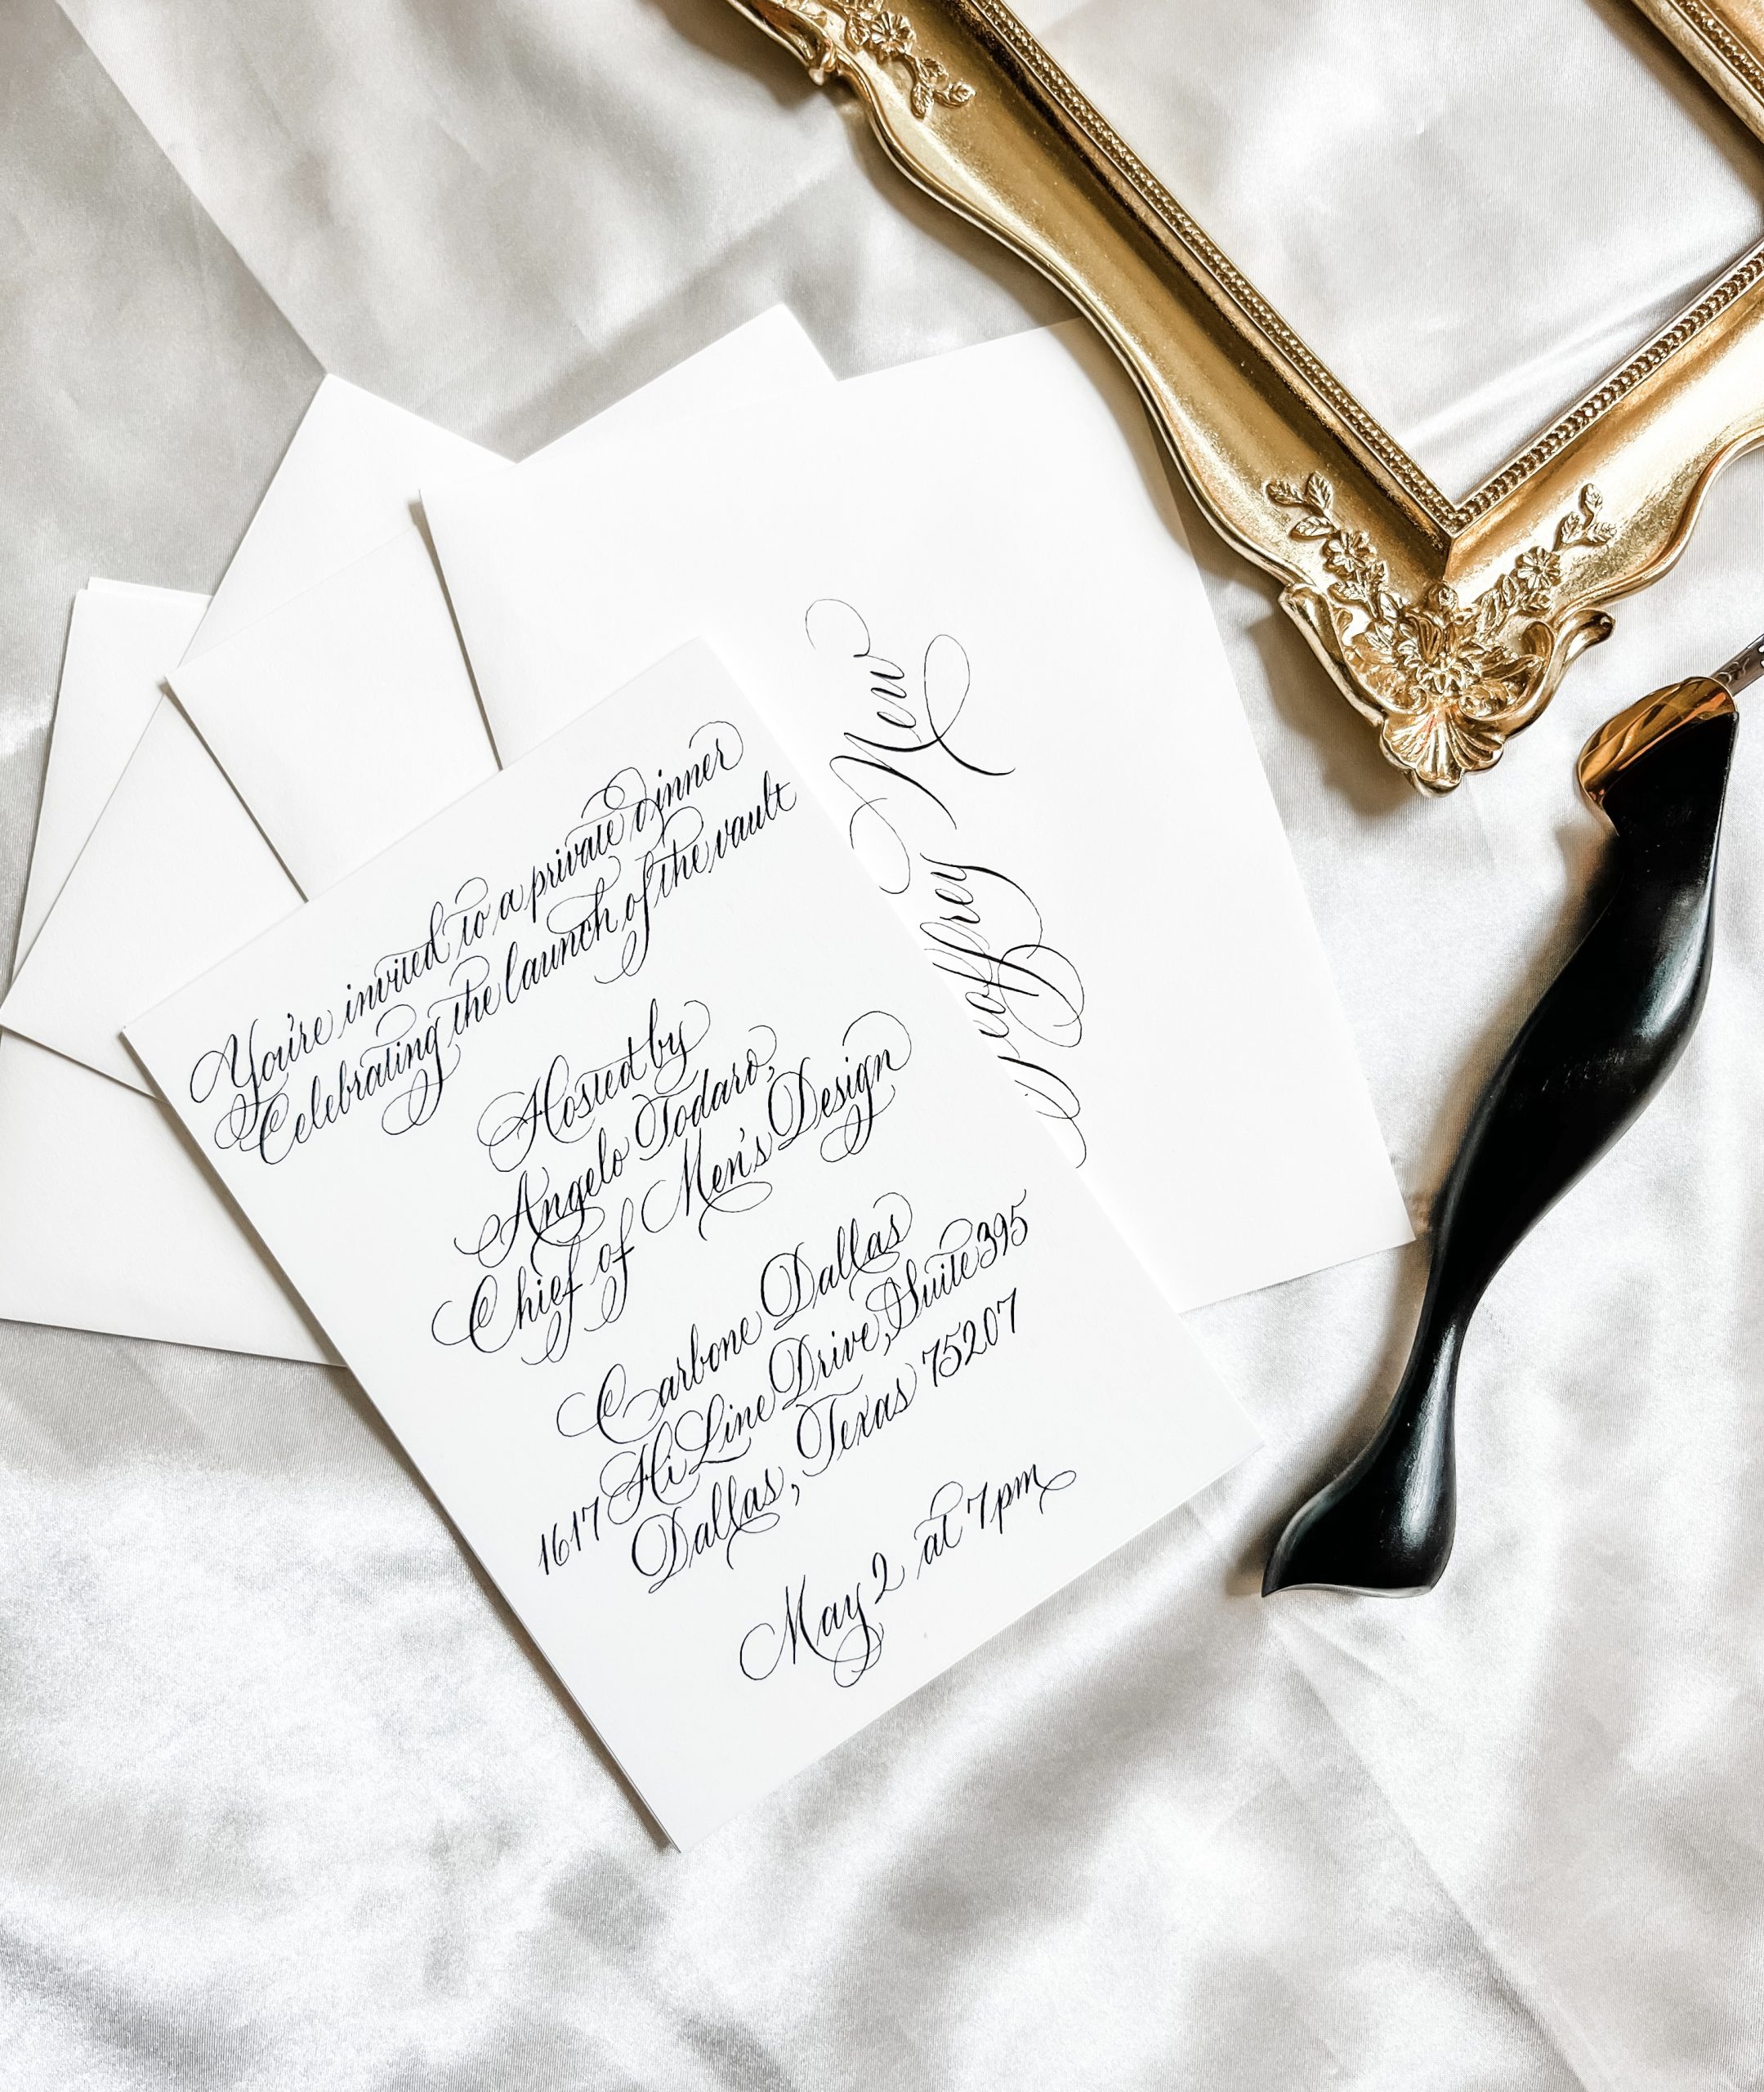 You're invited to a private dinner
Celebrating the launch of the vault
Hosted by
Angelo Todaro,
Chief of Men's Design
Carbone Dallas
1617 Hi Line Drive, Suite 395
Dallas, Texas 75207
May 2 at 7pm
Geoffrey